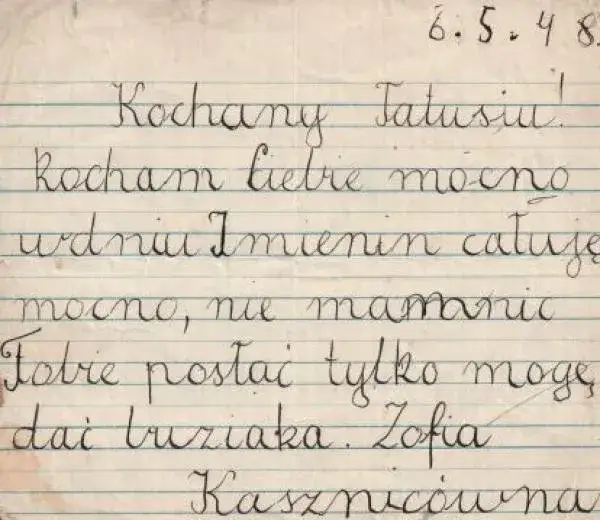 6.5.48.
Kochany Tatusiu!
Kocham Ciebie mocno
w dniu Imienin całuję
mocno, nie mam nic
Tobie posłać tylko mogę
dać buziaka. Zofia
Kasznicówna